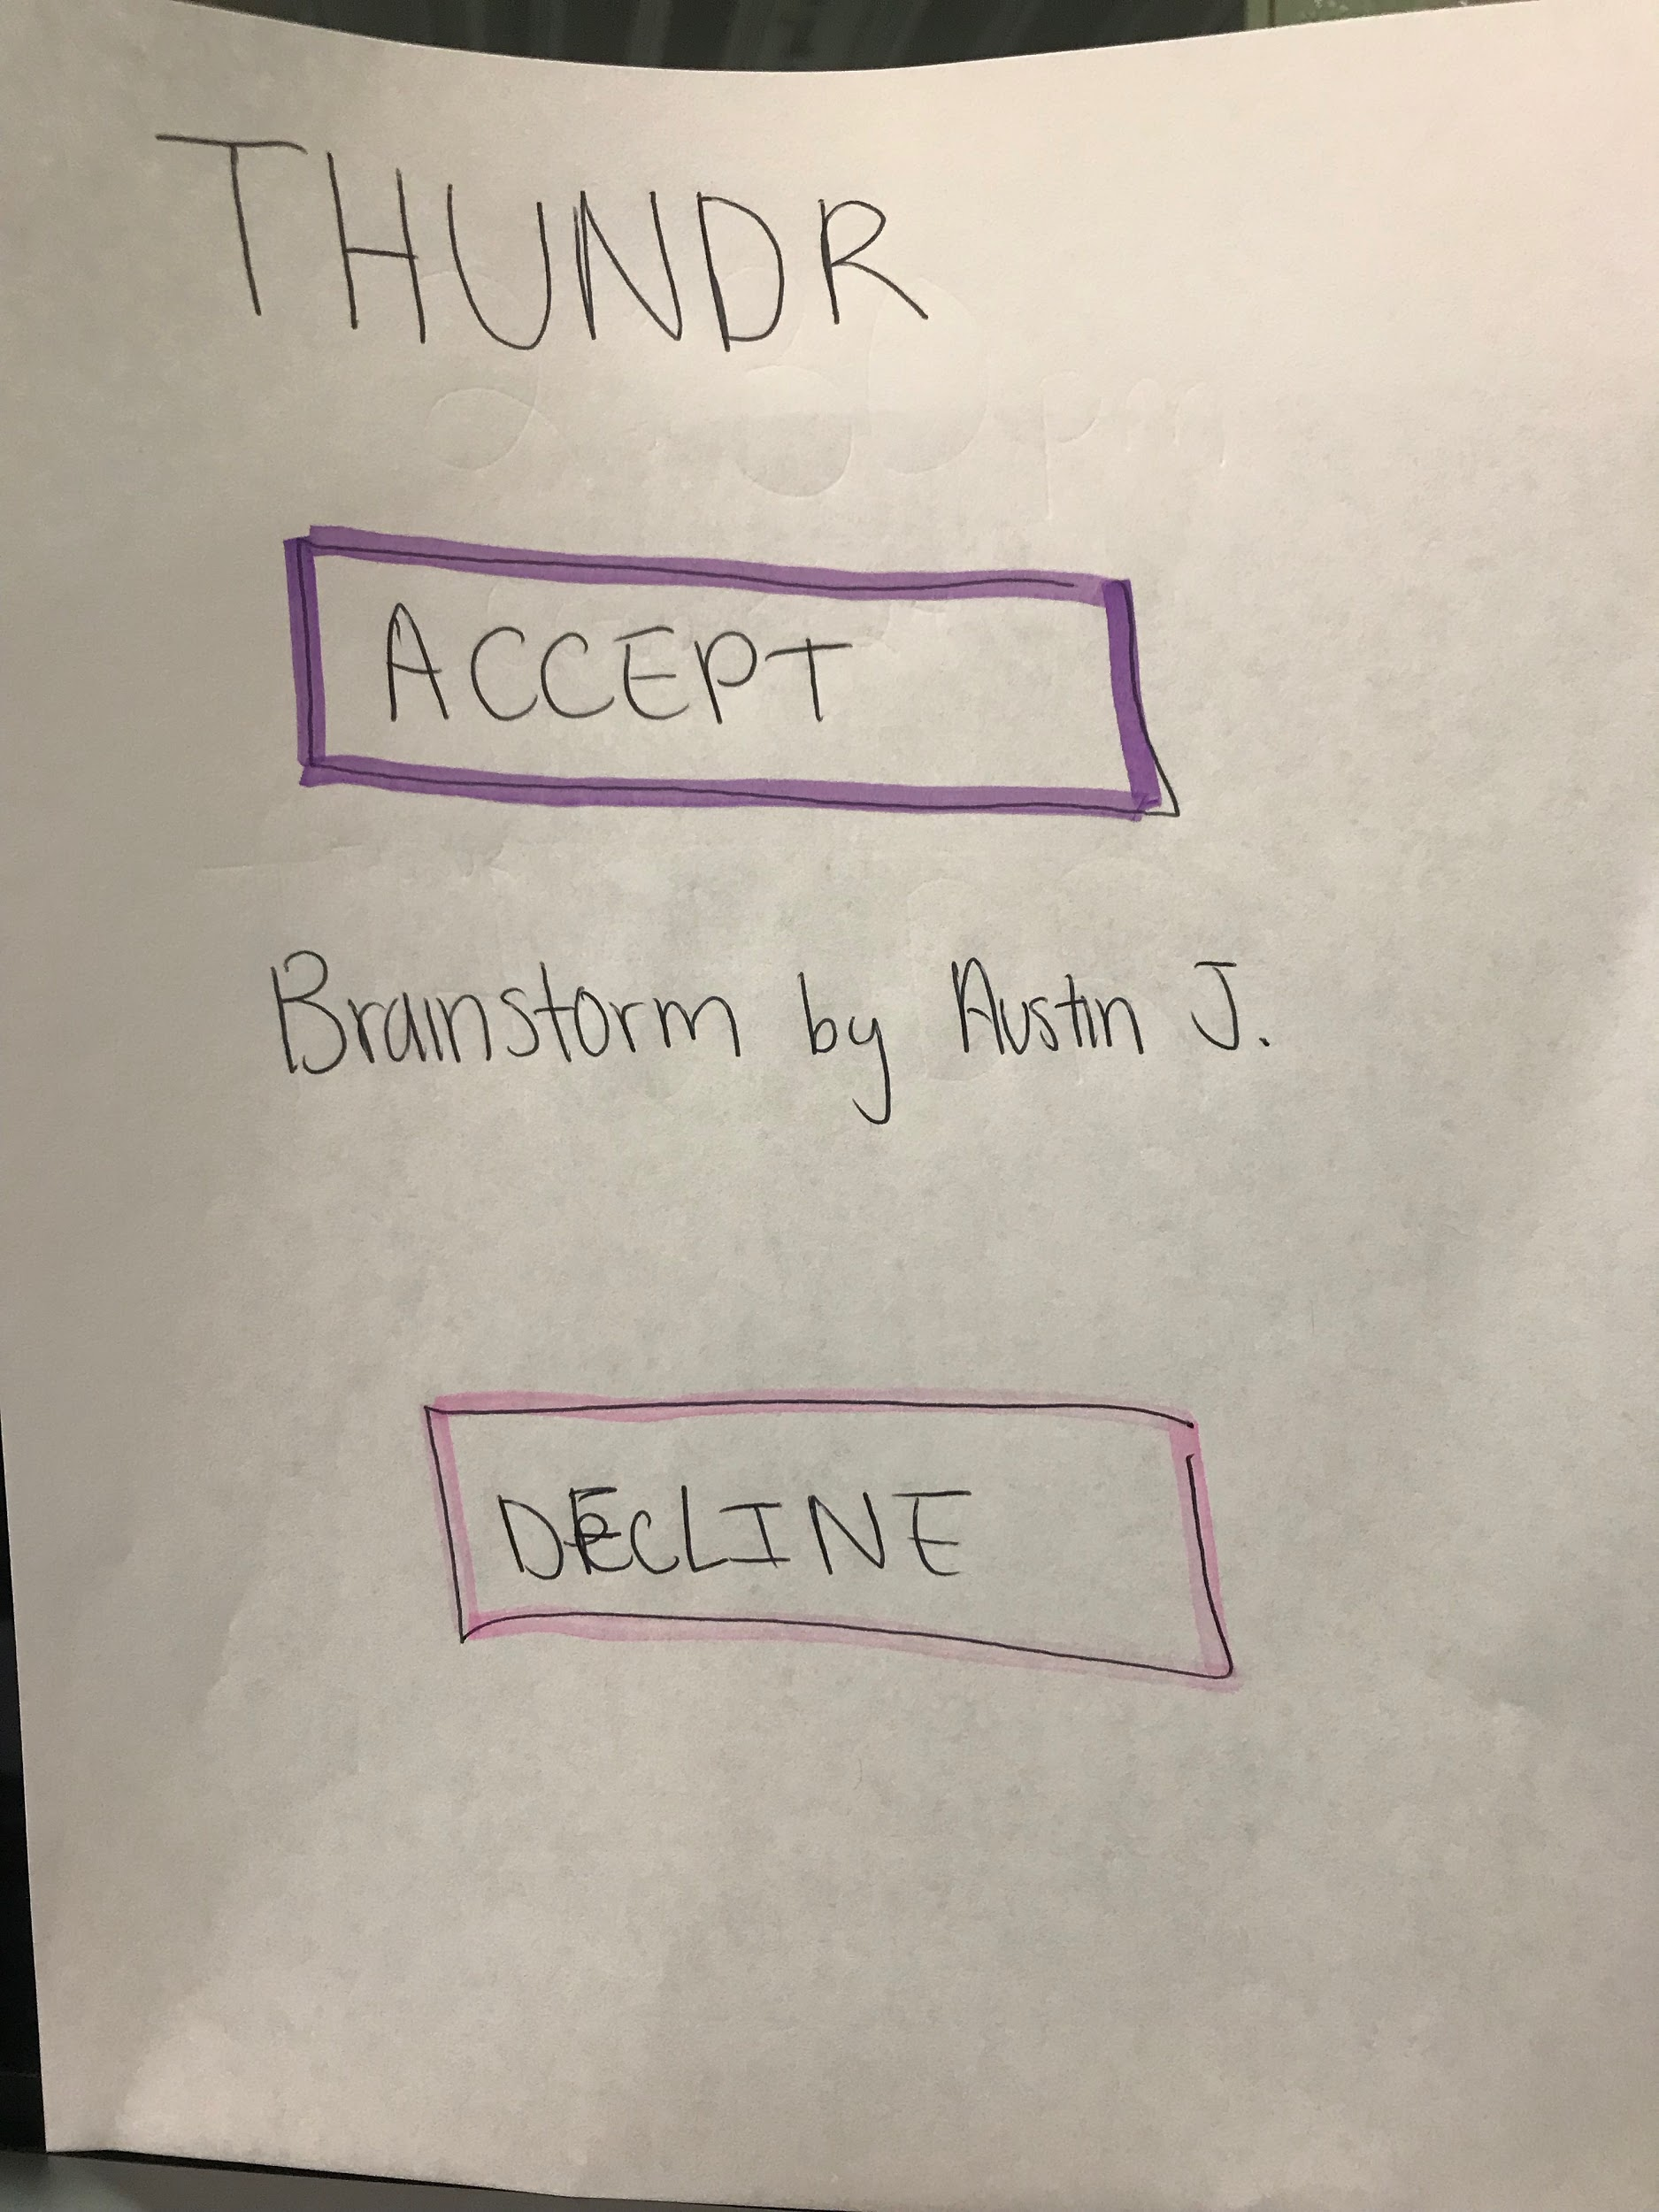 THUNDR
ACCEPT
Brainstorm by Austin J.
DECLINE